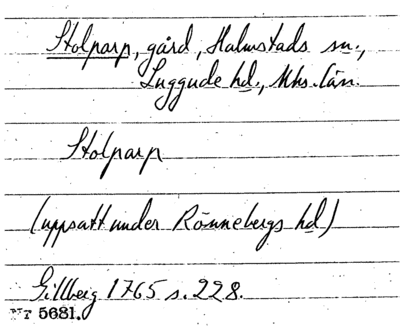 Stolparp, gård, Halmstads sn.,
Luggude hd., Mhs. län.
Stolparp
(uppsatt under Rönnebergs hd)
Gillberg 1765 s. 228.
5681.